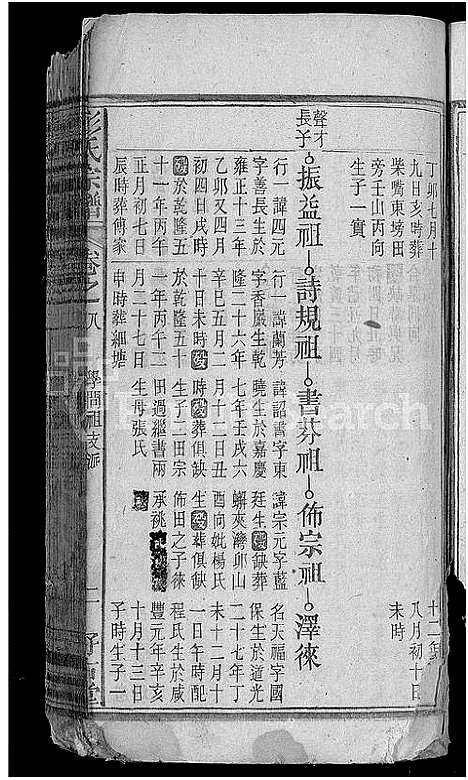 丁卯七月十
九日亥時葬
柴嘴東塝田
旁壬山丙向
生子一寳
八月初十日
未時
聲才
長子
振益祖
詩規祖
書芬祖
佈宗祖
澤徠
行一諱四元
字善長生於
雍正十三年
乙卯又四月
初四日戌時
歿於乾隆五
十一年丙午
正月初七日
辰時葬傅家
行一諱蘭芳
字香嚴生乾
隆二十六年
辛巳五月二
十日未時歿
於乾隆五十
一年丙午二
月二十七日
申時葬細塘
諱詔書字東
曉生於嘉慶
七年壬戌六
月十二日丑
時歿葬俱缺
生子二田宗
田過繼書兩
生母張氏
諱宗元字藍
廷生歿缺葬
蠏夾灣卯山
酉向妣楊氏
生歿葬俱缺
佈田之子徠
承祧
名天福字國
保生於道光
二十七年丁
未十二月十
一日午時配
程氏生於咸
豐元年辛亥
十月十三日
子時生子一
彭氏宗譜
卷之八
學商祖支派